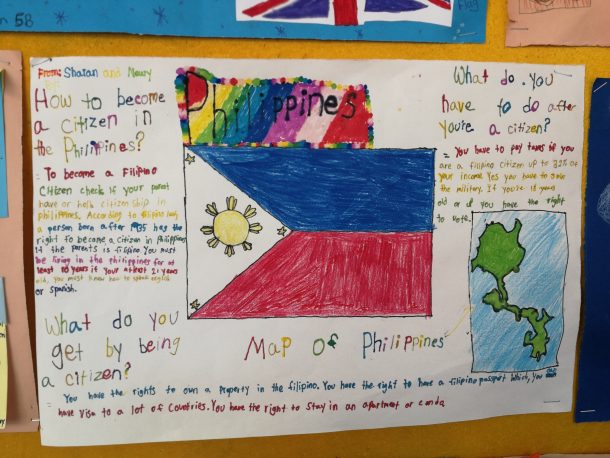 58
Flag
From: Sharan and Neury
How to become
a citizen in
the Philippines?
- To become a Filipino
Citizen check if your parent
have or holk citizenship in
philippines. According to filipino law,
a person born after 1935 has the
right to became a citizen in philippines
if the parents is filipino. You must
be living in the philippines for at
least 10 years if your atleast 21 years
old. You must know how to speak english
or spanish.
Philippines
What do you
have to do after
you're a citizen?
- You have to pay taxes if you
are a filipino citizen up to 32% of
your income. Yes you have to
the military. If you're 18 years
old or if you have the right
to vote.
Map of Philippines
What do you
get by being
a citizen?
- You have the rights to own a property in the filipino. You have the right to have a filipino passport which, you
have visa to a lot of countries. You have the right to stay in an apartment or condo